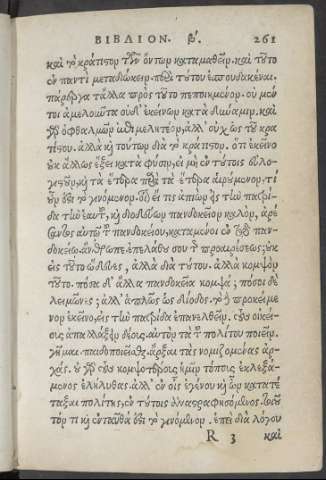 ΒΙΒΛΙΟΝ. β'. 261
καὶ τὸ κράτιστον τῶν ὄντων καταμαθεῖν. καὶ τοῦτο
ἐν παντὶ μεταδιώκειν. περὶ τούτου ἐσπουδακέναι.
πάρεργα τἄλλα πρὸς τοῦτο πεποιημένον. οὐ μέν
τοι ἀμελοῦντα οὐδ' ἐκείνων κατὰ δύναμιν. καὶ
γὰρ ὀφθαλμῶν ἐπιμελητέον, ἀλλ' οὐχ ὡς τοῦ κρα
τίστου. ἀλλὰ καὶ τούτων διὰ τὸ κράτιστον. ὅτι ἐκεῖνο
οὐκ ἄλλως ἕξει κατὰ φύσιν, εἰ μὴ ἐν τούτοις εὐλογι
στοῦν, καὶ τὰ ἕτερα παρὰ τὰ ἕτερα αἱρούμενον. τί
οὖν ἐστι τὸ γινόμενον; οἷον εἴ τις ἀπιὼν εἰς τὴν πατρί
δα τὴν ἑαυτοῦ, καὶ διοδεύων πανδοκεῖον καλὸν, ἀρέ
σαντος αὐτῷ τοῦ πανδοκείου, καταμένοι ἐν τῷ παν
δοκείῳ. ἄνθρωπε, ἐπελάθου σου τῆς προαιρέσεως; οὐκ
εἰς τοῦτο ὥδευες, ἀλλὰ διὰ τούτου. ἀλλὰ κομψὸν
τοῦτο. πόσα δ' ἄλλα πανδοκεῖα κομψά; πόσοι δὲ
λειμῶνες; ἀλλ' ἁπλῶς ὡς δίοδος. τὸ προκείμε
νον ἐκεῖνο, εἰς τὴν πατρίδα ἐπανελθεῖν. τοὺς οἰκεί
ους ἀπαλλάξαι δέους. αὐτὸν τὰ τοῦ πολίτου ποιεῖν.
γῆμαι. παιδοποιεῖσθαι. ἄρξαι τὰς νομιζομένας ἀρ
χάς. οὐ γὰρ τοὺς κομψοτέρους ἡμῖν τόπους ἐκλεξό
μενος ἐλήλυθας. ἀλλ' ἐν οἷς ἐγένου καὶ ὧν κατατέ
ταξαι πολίτης, ἐν τούτοις ἀναστραφησόμενος. τοιοῦ
τόν τι καὶ ἐνταῦθά ἐστι τὸ γινόμενον. ἐπεὶ διὰ λόγου
R 3 καὶ